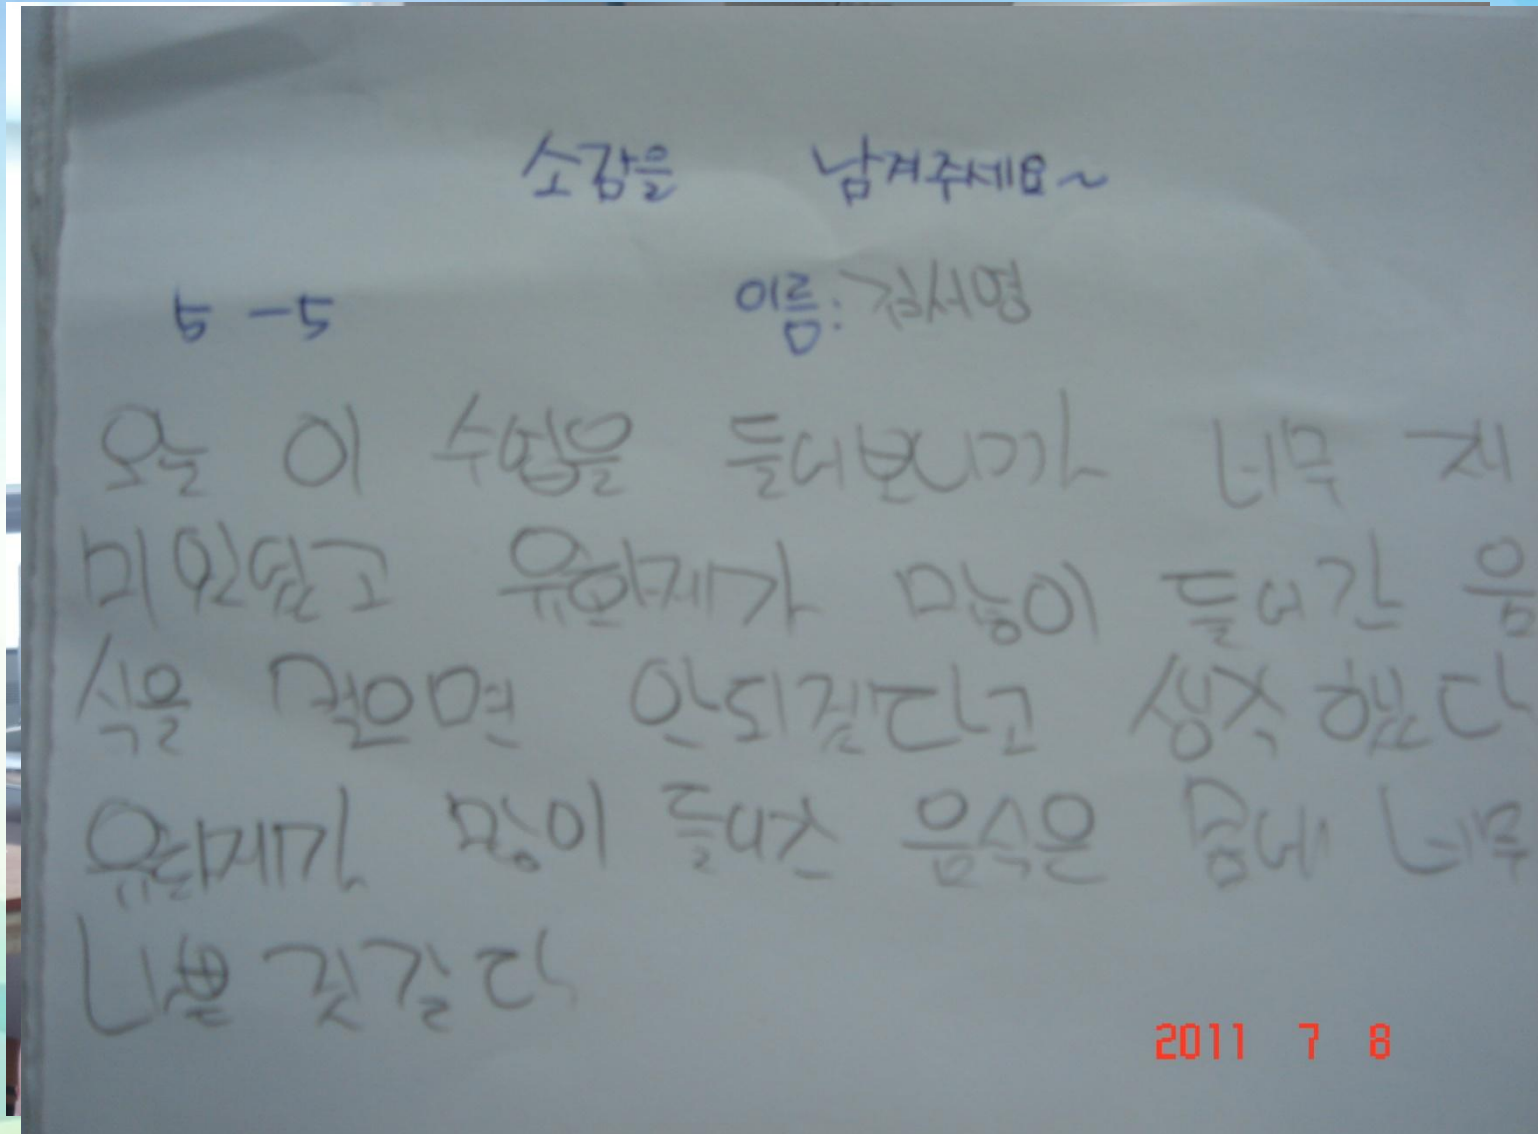 소감을 남겨주세요~
5-5 이름: 김서영
오늘 이 수업을 들어보니까 너무 재
미있었고 유화제가 많이 들어간 음
식을 먹으면 안되겠다고 생각했다
유화제가 많이 들어간 음식은 몸에 너무
나쁠 것 같다
2011 7 8